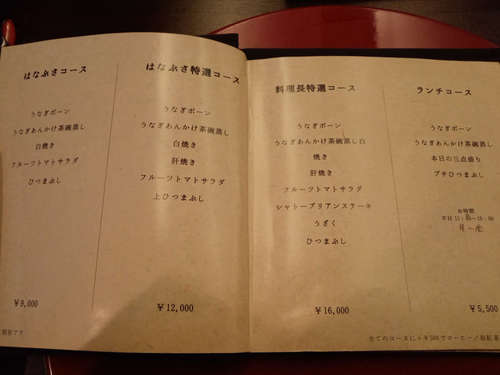 はなぶさコース
うなぎボーン
うなぎあんかけ茶碗蒸し
白焼き
フルーツトマトサラダ
ひつまぶし
￥9,000
はなぶさ特選コース
うなぎボーン
うなぎあんかけ茶碗蒸し
白焼き
肝焼き
フルーツトマトサラダ
上ひつまぶし
￥12,000
料理長特選コース
うなぎボーン
うなぎあんかけ茶碗蒸し白
焼き
肝焼き
フルーツトマトサラダ
シャトーブリアンステーキ
うざく
ひつまぶし
￥16,000
ランチコース
うなぎボーン
うなぎあんかけ茶碗蒸し
本日の三点盛り
プチひつまぶし
お時間
平日 11:
￥5,500
全てのコースに＋